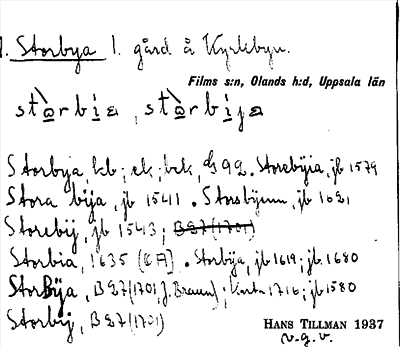 1. Storbya l. gård å Kyrkbyn.
Films s:n, Olands h:d, Uppsala län
Storbya kb; ek; bek, G 92. Storebyia, jb 1579
Stora bija, jb 1541. Storsbijenn, jb 1621
Storebij, jb 1543; B27(1701)
Storbia, 1635 (CA). Storbija, jb 1619; jb 1680
StorBija, B27(1701, J. Braun); Karta 1716; jb 1580
Storbij, B27(1701)
HANS TILLMAN 1937
v.g.v.